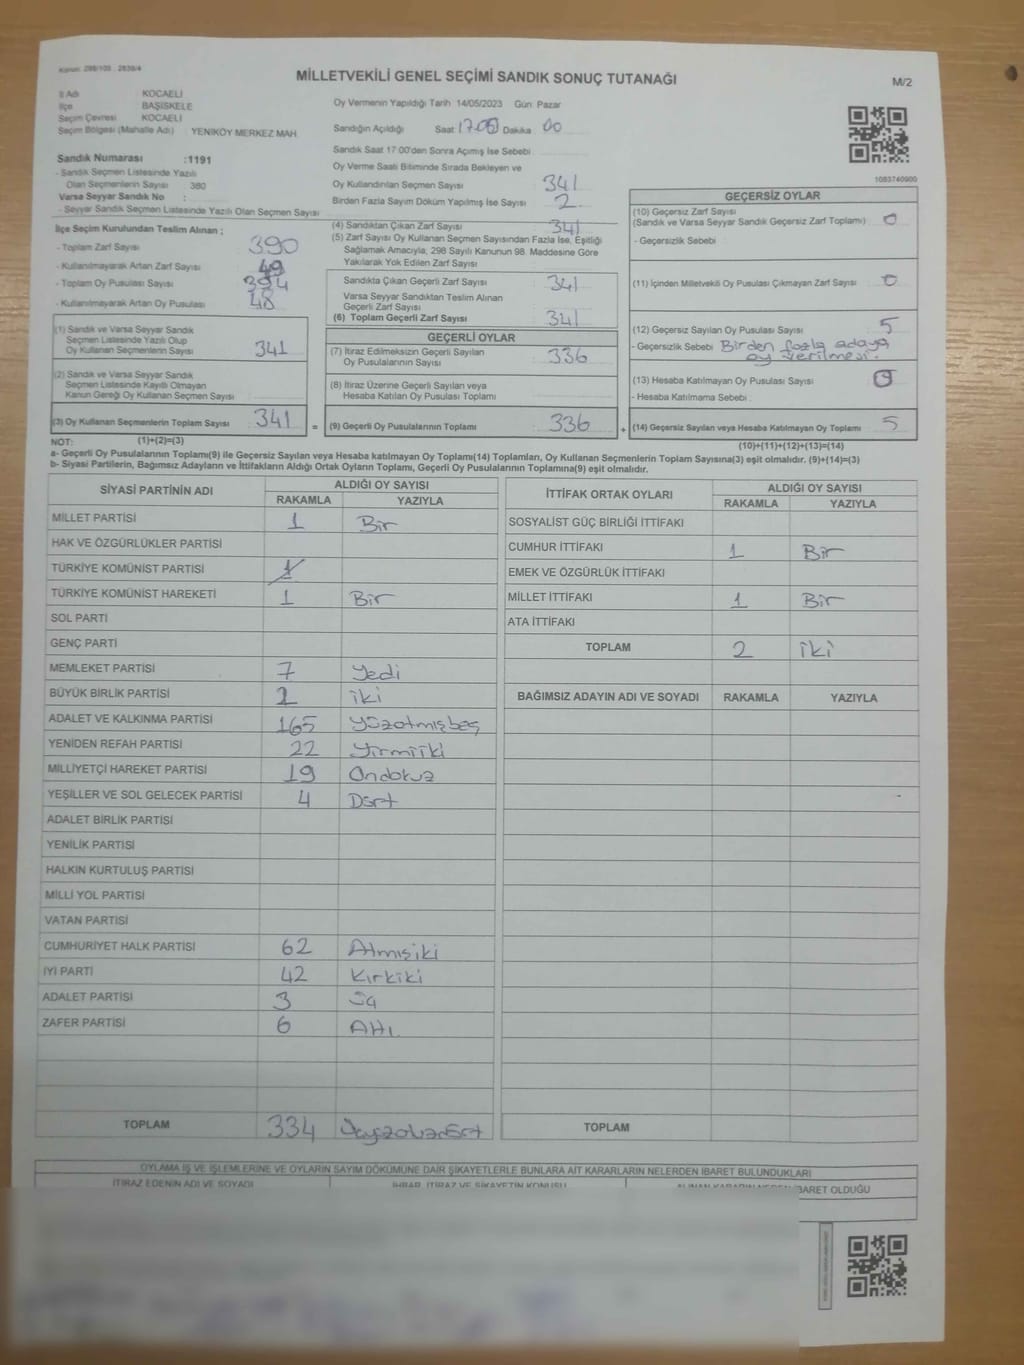 Kanun: 298/105 - 2839/4
MİLLETVEKİLİ GENEL SEÇİMİ SANDIK SONUÇ TUTANAĞI
M/2
İl Adı KOCAELİ
İlçe BAŞİSKELE
Seçim Çevresi KOCAELİ
Seçim Bölgesi (Mahalle Adı) YENİKÖY MERKEZ MAH.
Sandık Numarası :1191
- Sandık Seçmen Listesinde Yazılı
Olan Seçmenlerin Sayısı : 380
Varsa Seyyar Sandık No :
- Seyyar Sandık Seçmen Listesinde Yazılı Olan Seçmen Sayısı :
Oy Vermenin Yapıldığı Tarih 14/05/2023 Gün: Pazar
Sandığın Açıldığı Saat 17:05 Dakika 00
Sandık Saat 17:00'den Sonra Açımış İse Sebebi :
Oy Verme Saati Bitiminde Sırada Bekleyen ve
Oy Kullandırılan Seçmen Sayısı 341
Birden Fazla Sayım Döküm Yapılmış İse Sayısı : 2
1083740900
İlçe Seçim Kurulundan Teslim Alınan ;
- Toplam Zarf Sayısı : 390
- Kullanılmayarak Artan Zarf Sayısı : 49
- Toplam Oy Pusulası Sayısı : 394
- Kullanılmayarak Artan Oy Pusulası : 48
(1) Sandık ve Varsa Seyyar Sandık
Seçmen Listesinde Yazılı Olup
Oy Kullanan Seçmenlerin Sayısı : 341
(2) Sandık ve Varsa Seyyar Sandık
Seçmen Listesinde Kayıtlı Olmayan
Kanun Gereği Oy Kullanan Seçmen Sayısı :
(3) Oy Kullanan Seçmenlerin Toplam Sayısı : 341
(4) Sandıktan Çıkan Zarf Sayısı : 341
(5) Zarf Sayısı Oy Kullanan Seçmen Sayısından Fazla İse, Eşitliği
Sağlamak Amacıyla, 298 Sayılı Kanunun 98. Maddesine Göre
Yakılarak Yok Edilen Zarf Sayısı :
Sandıkta Çıkan Geçerli Zarf Sayısı : 341
Varsa Seyyar Sandıktan Teslim Alınan
Geçerli Zarf Sayısı :
(6) Toplam Geçerli Zarf Sayısı : 341
GEÇERLİ OYLAR
(7) İtiraz Edilmeksizin Geçerli Sayılan
Oy Pusulalarının Sayısı : 336
(8) İtiraz Üzerine Geçerli Sayılan veya
Hesaba Katılan Oy Pusulası Toplamı :
= (9) Geçerli Oy Pusulalarının Toplamı : 336
GEÇERSİZ OYLAR
(10) Geçersiz Zarf Sayısı
(Sandık ve Varsa Seyyar Sandık Geçersiz Zarf Toplamı) : 0
- Geçersizlik Sebebi :
(11) İçinden Milletvekili Oy Pusulası Çıkmayan Zarf Sayısı : 0
(12) Geçersiz Sayılan Oy Pusulası Sayısı : 5
- Geçersizlik Sebebi : Birden fazla adaya
oy verilmesi.
(13) Hesaba Katılmayan Oy Pusulası Sayısı : 0
- Hesaba Katılmama Sebebi :
+ (14) Geçersiz Sayılan veya Hesaba Katılmayan Oy Toplamı : 5
NOT: (1)+(2)=(3) (10)+(11)+(12)+(13)=(14)
a- Geçerli Oy Pusulasının Toplamı(9) ile Geçersiz Sayılan veya Hesaba katılmayan Oy Toplamı(14) Toplamları, Oy Kullanan Seçmenlerin Toplam Sayısına(3) eşit olmalıdır. (9)+(14)=(3)
b- Siyasi Partilerin, Bağımsız Adayların ve İttifakların Aldığı Ortak Oyların Toplamı, Geçerli Oy Pusulalarının Toplamına(9) eşit olmalıdır.
SİYASİ PARTİNİN ADI ALDIĞI OY SAYISI
RAKAMLA YAZIYLA
MİLLET PARTİSİ 1 Bir
HAK VE ÖZGÜRLÜKLER PARTİSİ
TÜRKİYE KOMÜNİST PARTİSİ 1
TÜRKİYE KOMÜNİST HAREKETİ 1 Bir
SOL PARTİ
GENÇ PARTİ
MEMLEKET PARTİSİ 7 Yedi
BÜYÜK BİRLİK PARTİSİ 2 iki
ADALET VE KALKINMA PARTİSİ 165 yüzatmışbeş
YENİDEN REFAH PARTİSİ 22 yirmiiki
MİLLİYETÇİ HAREKET PARTİSİ 19 Ondokuz
YEŞİLLER VE SOL GELECEK PARTİSİ 4 Dört
ADALET BİRLİK PARTİSİ
YENİLİK PARTİSİ
HALKIN KURTULUŞ PARTİSİ
MİLLİ YOL PARTİSİ
VATAN PARTİSİ
CUMHURİYET HALK PARTİSİ 62 Atmışiki
İYİ PARTİ 42 Kırkiki
ADALET PARTİSİ 3 Üç
ZAFER PARTİSİ 6 Altı
TOPLAM 334
İTTİFAK ORTAK OYLARI ALDIĞI OY SAYISI
RAKAMLA YAZIYLA
SOSYALİST GÜÇ BİRLİĞİ İTTİFAKI
CUMHUR İTTİFAKI 1 Bir
EMEK VE ÖZGÜRLÜK İTTİFAKI
MİLLET İTTİFAKI 1 Bir
ATA İTTİFAKI
TOPLAM 2 iki
BAĞIMSIZ ADAYIN ADI VE SOYADI RAKAMLA YAZIYLA
TOPLAM
OYLAMA İŞ VE İŞLEMLERİNE VE OYLARIN SAYIM DÖKÜMÜNE DAİR ŞİKAYETLERLE BUNLARA AİT KARARLARIN NELERDEN İBARET BULUNDUKLARI
İTİRAZ EDENİN ADI VE SOYADI İHBAR, İTİRAZ VE ŞİKAYETİN KONUSU ALINAN KARARIN NEDEN İBARET OLDUĞU